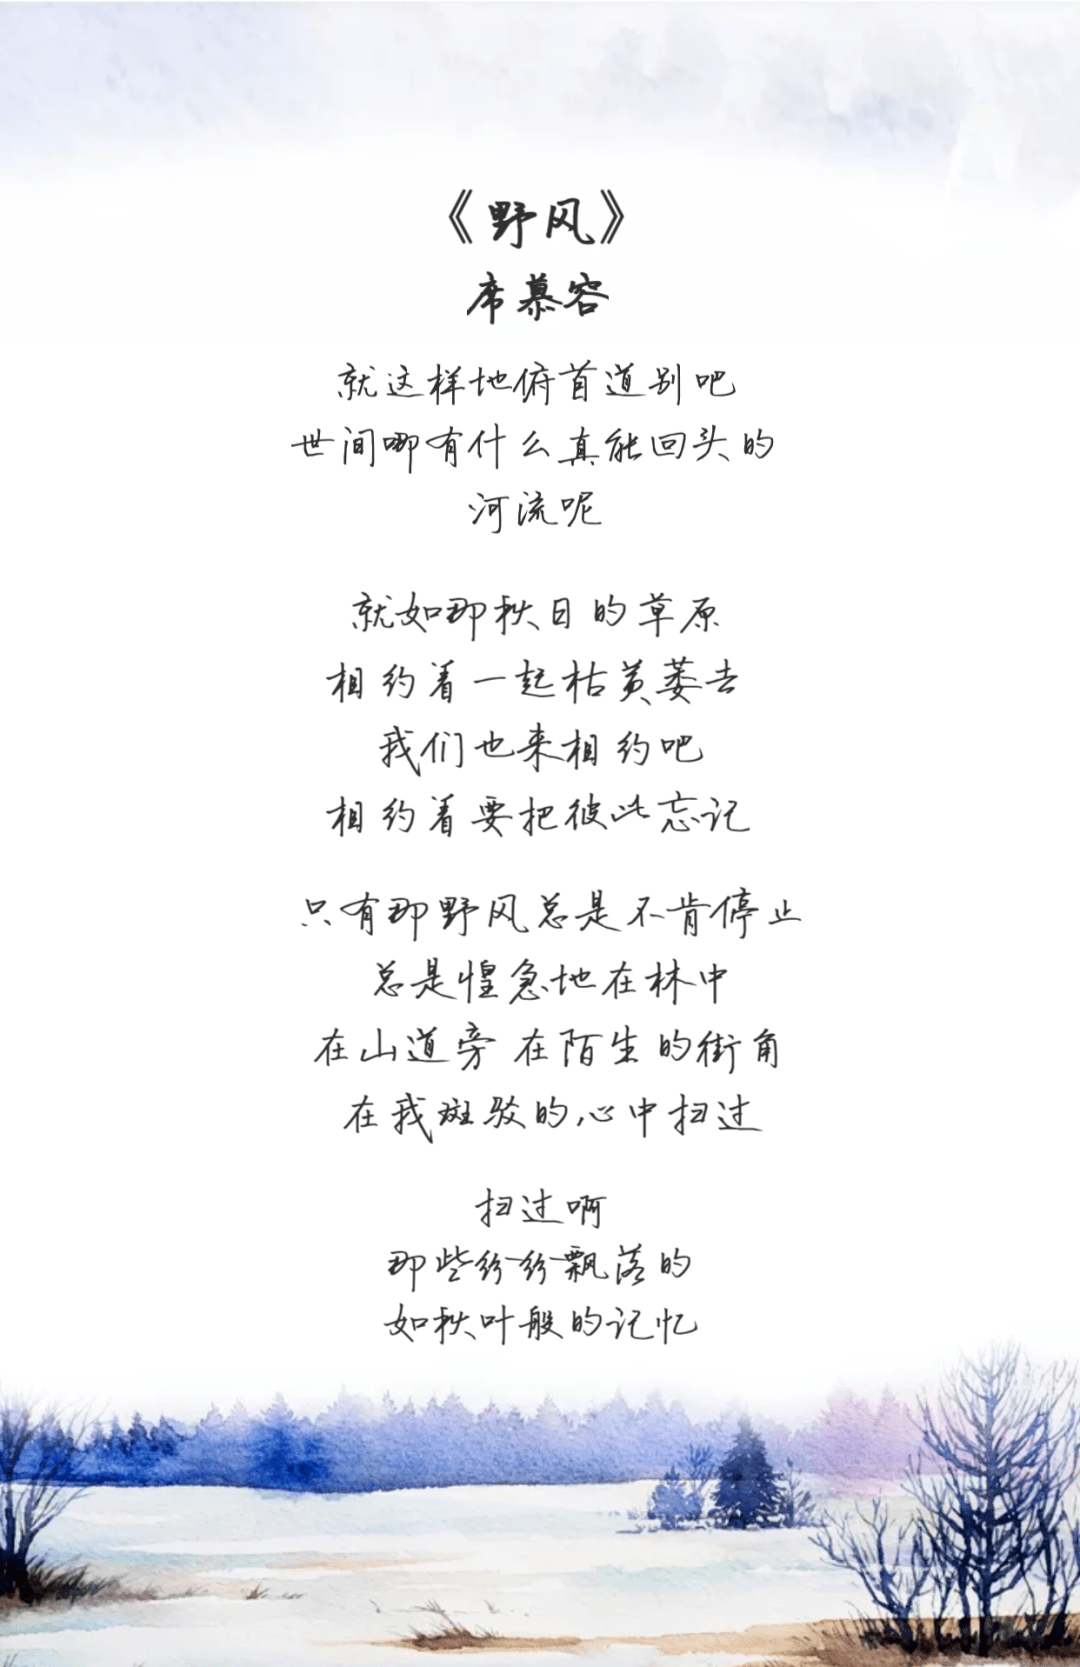 《野风》
席慕容
就这样地俯首道别吧
世间哪有什么真能回头的
河流呢
就如那秋日的草原
相约着一起枯黄萎去
我们也来相约吧
相约着要把彼此忘记
只有那野风总是不肯停止
总是惶急地在林中
在山道旁 在陌生的街角
在我斑驳的心中扫过
扫过啊
那些纷纷飘落的
如秋叶般的记忆